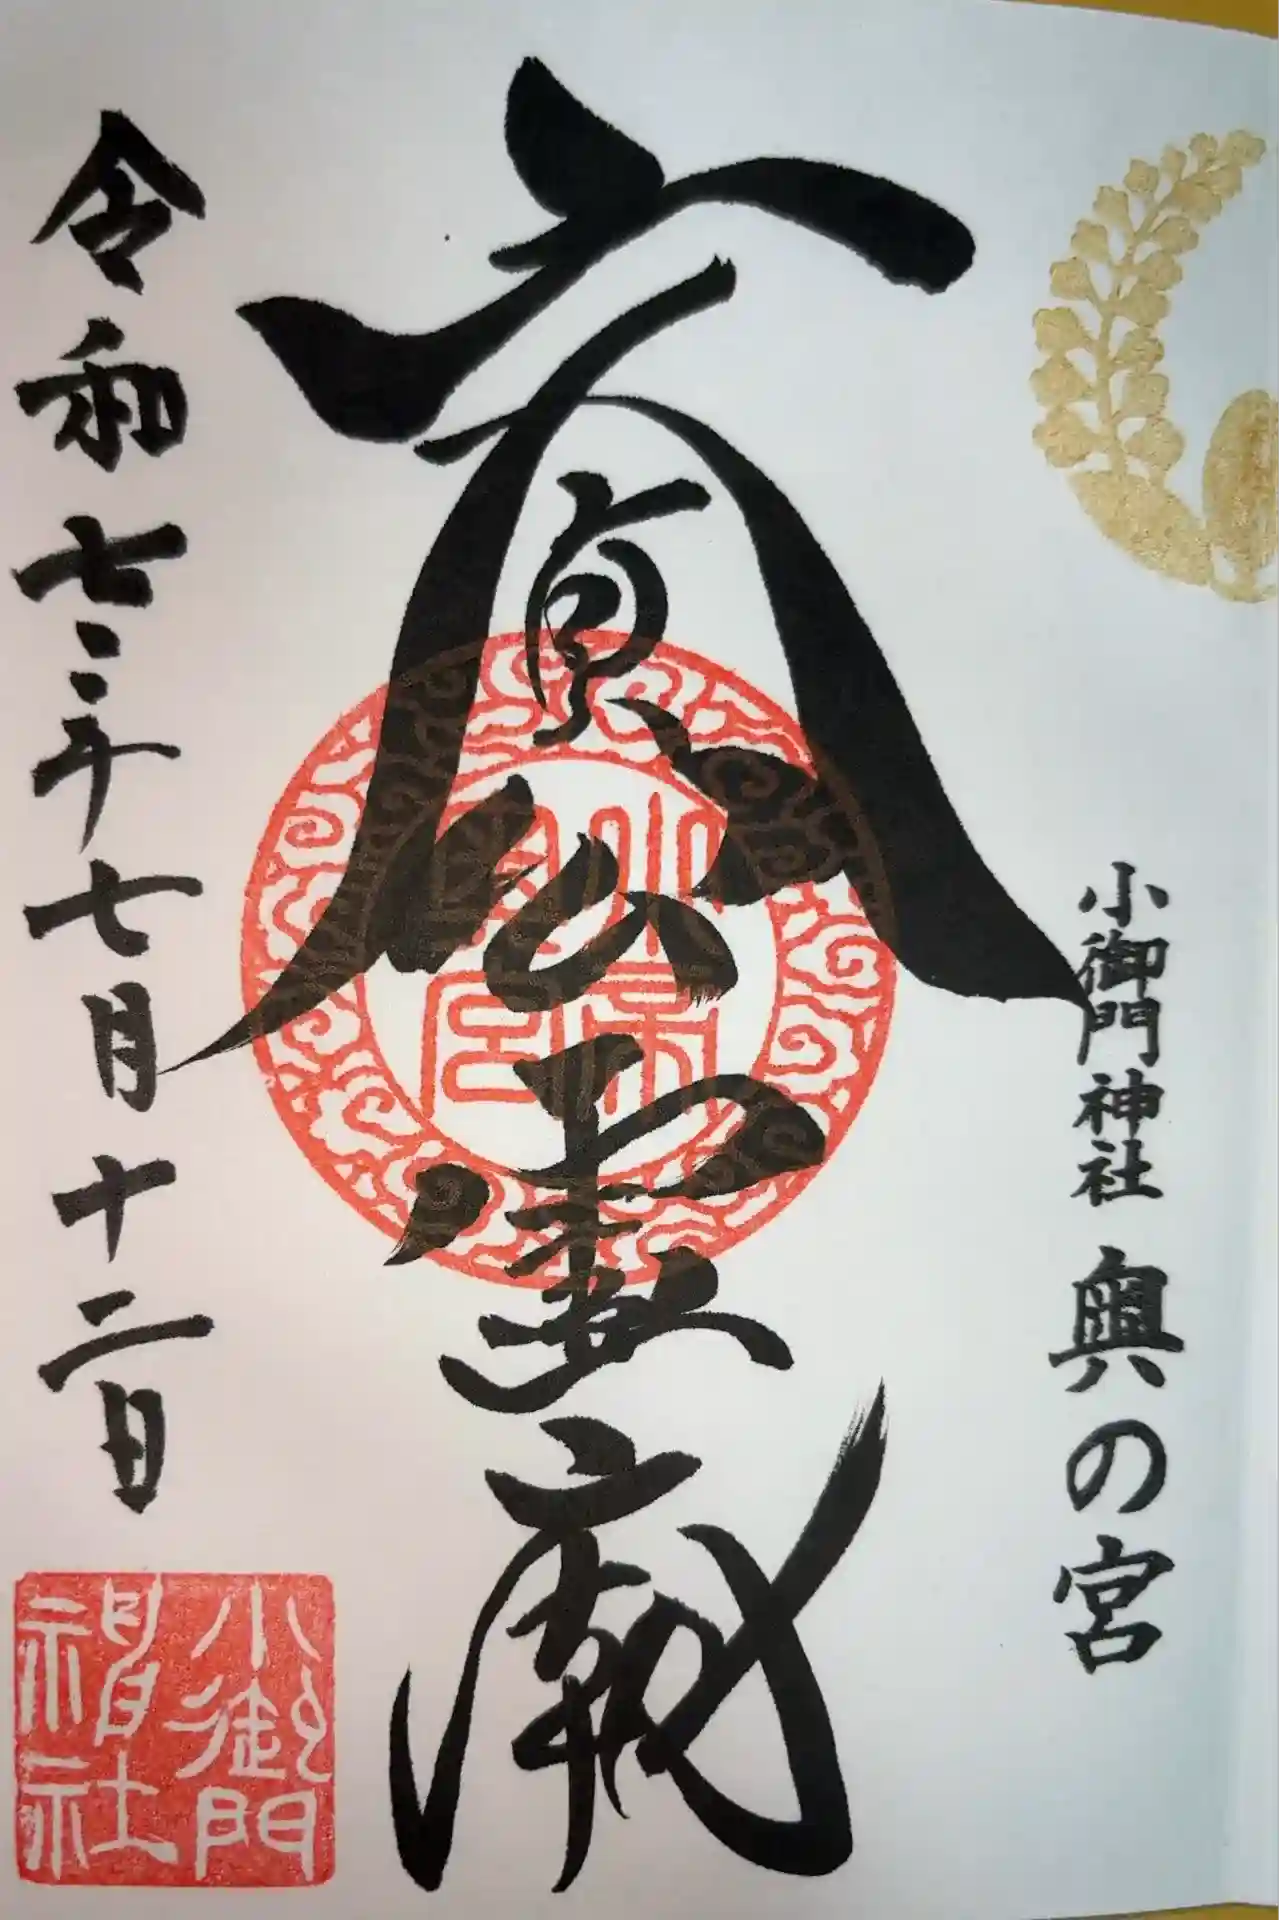 小御門神社 奥の宮
文貞公霊廟
令和七年七月十二日
小御門
神社